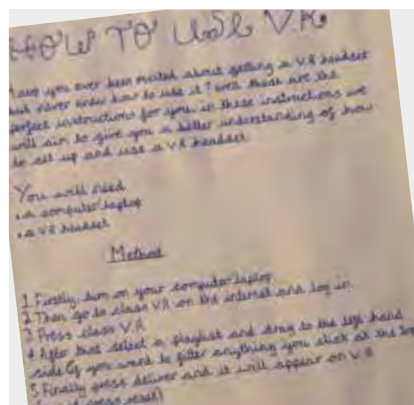 HOW TO USE VR
Have you ever been excited about getting a VR headset
but never knew how to use it? well these are the
perfect instructions for you, in these instructions we
will aim to give you a better understanding of how
to set up and use a VR headset.
You will need
• a computer/laptop
• a VR headset
Method
1 Firstly, turn on your computer/laptop
2 Then go to class VR on the internet and log in
3 Press class V.R
4 After that select a playlist and drag to the left hand
side (if you want to filter anything you click at the top
5 Finally press deliver and it will appear on V.R
press